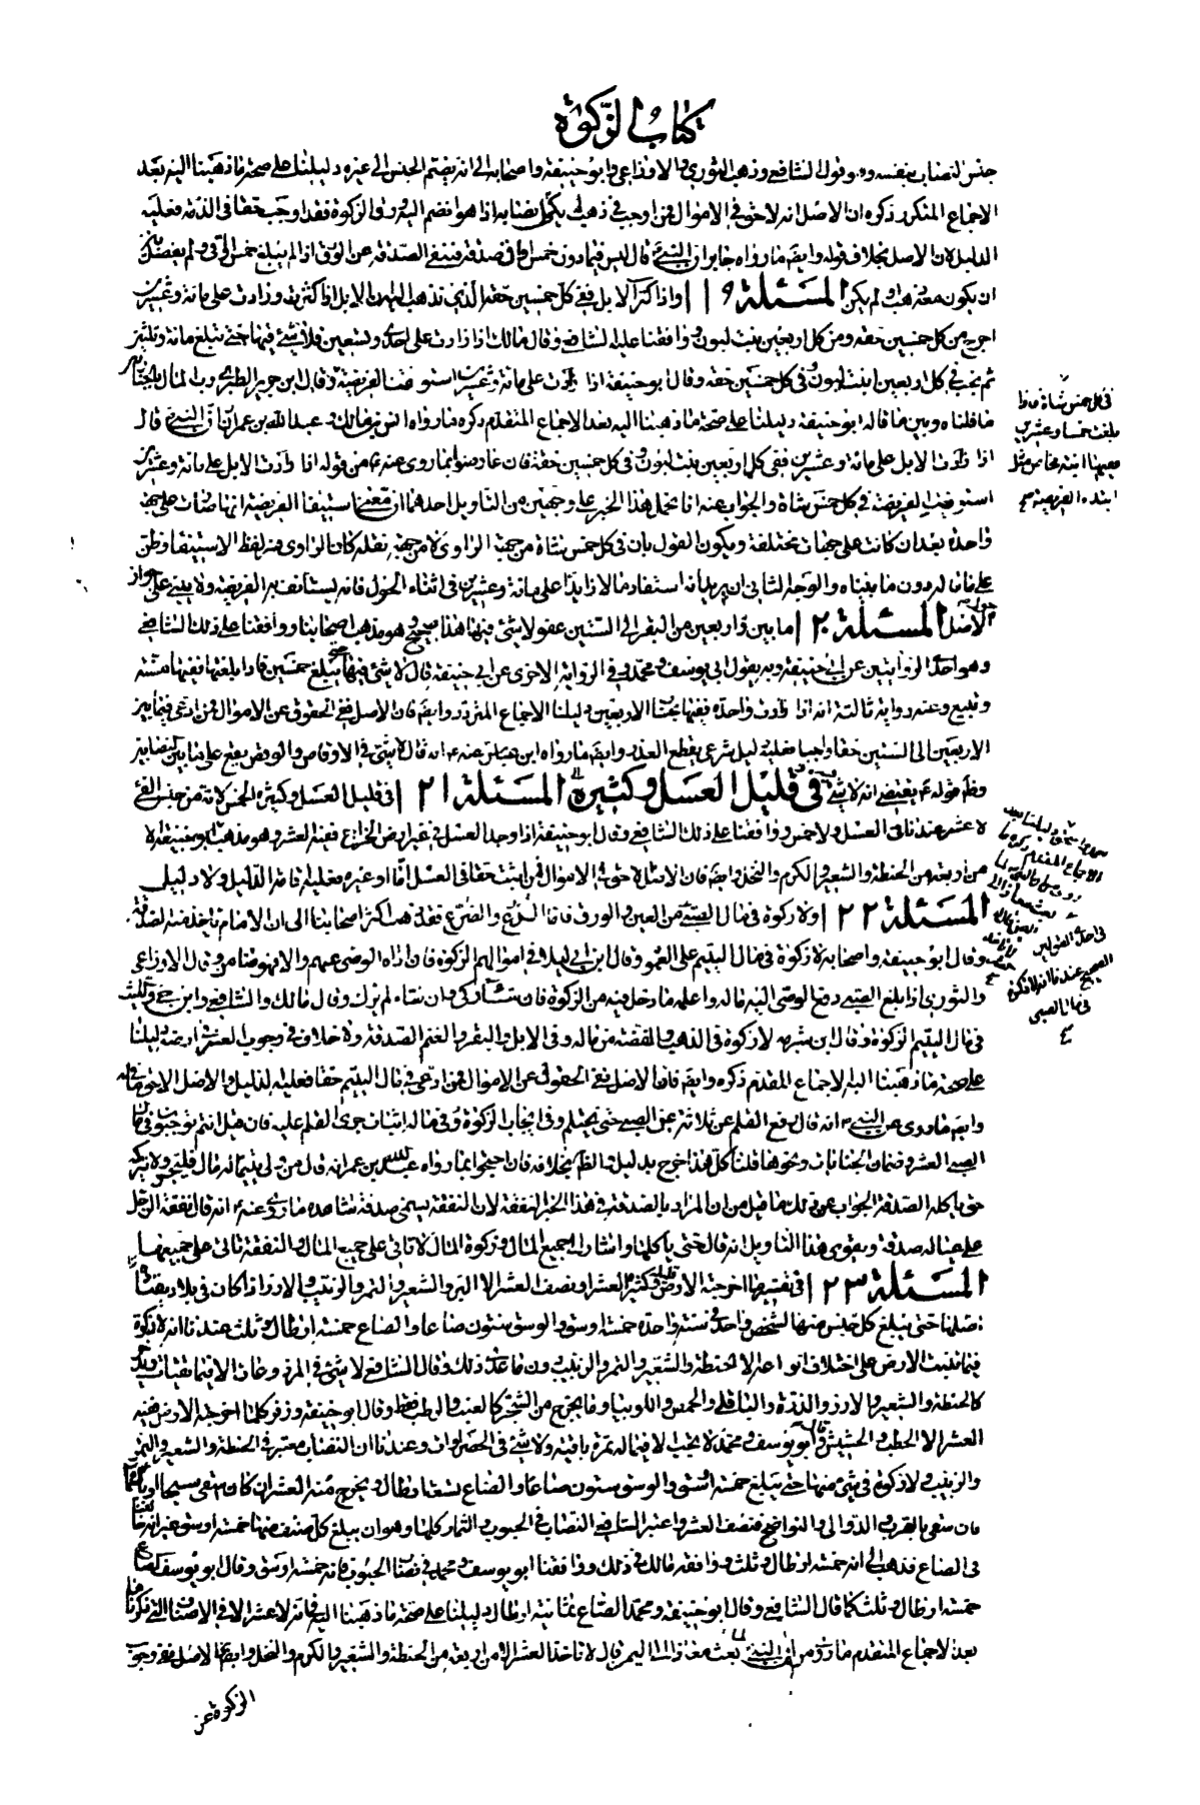 كتاب الزكوة
جنس النصاب بنفسه وهو قول الشافعي وذهب الثوري والاوزاعي وابو حنيفة واصحابه الى انه يضم الجنس الى غيره دليلنا على صحة ما ذهبنا اليه بعد
الاجماع المتكرر ذكره ان الاصل انه لا حق في الاموال فمن اوجب في ذهب لم يكمل نصابه اذا هو انضم اليه ورق الزكوة فقد اوجب حقا في الذمة فعليه
الدليل لان الاصل بخلاف قوله وايضا ما رواه جابر ان النبي قال ليس فيما دون خمس اواق صدقة فنفى الصدقة عن الورق اذا لم يبلغ خمس اواق ولم يفصل بين
ان يكون معه ذهب او لم يكن المسئلة ١١٩ واذا كثرت الابل ففي كل خمسين حقة الذي تذهب اليه ان الابل اذا كثرت وزادت على مائة وعشرين
اخرج من كل خمسين حقة ومن كل اربعين بنت لبون ووافقنا عليه الشافعي وقال مالك اذا زادت على احدى وتسعين فلا شيء فيها حتى تبلغ مائة وثلثين
ثم يجب في كل اربعين ابنة لبون وفي كل خمسين حقة وقال ابو حنيفة اذا زادت على مائة وعشرين استونفت الفريضة وقال ابن جرير الطبري رب المال بالخيار بين
ما قلناه وبين ما قاله ابو حنيفة دليلنا على صحة ما ذهبنا اليه بعد الاجماع المتقدم ذكره ما رواه انس بن مالك وعبد الله بن عمر ان النبي قال
اذا زادت الابل على مائة وعشرين ففي كل اربعين بنت لبون وفي كل خمسين حقة فان عارضوا بما روى عنه ع من قوله اذا زادت الابل على مائة وعشرين
استونفت الفريضة في كل خمس شاة والجواب عنه انا نحمل هذا الخبر على وجهين من التأويل احدهما ان معنى استيناف الفريضة انها صارت على جهة
واحدة بعد ان كانت على جهات مختلفة ويكون القول بان في كل خمس شاة من جهة الراوي لا من جهة نقله كان الراوي فسر لفظ الاستيناف وظن
على ما قاله دون ما بيناه والوجه الثاني ان يريد انه استفاد مالا زايدا على مائة وعشرين في اثناء الحول فانه يستأنف به الفريضة ولا يبنى على حول
الاصل المسئلة ١٢٠ ما بين اربعين من البقر الى الستين عفو لا شيء فيها هذا صحيح وهو مذهب اصحابنا ووافقنا على ذلك الشافعي
وهو احدى الروايتين عن ابي حنيفة وبه يقول ابي يوسف ومحمد وفي الرواية الاخرى عن ابي حنيفة قال لا شيء فيها حتى يبلغ خمسين فاذا بلغتها ففيها مسنة
وتبيع وعنه رواية ثالثة انه اذا زادت واحدة ففيها بحساب الاربعين دليلنا الاجماع المتردد وايضا فان الاصل نفي الحقوق عن الاموال فمن ادعى فيما بين
الاربعين الى الستين حقا واجبا فعليه دليل شرعي يقطع العذر وايضا ما رواه ابن عباس عنه ع انه قال لا شيء في الاوقاص والوقص يقع على ما بين النصابين
وظاهر قوله ع يقتضي انه لا شيء فيه في قليل العسل وكثيره المسئلة ١٢١ في قليل العسل وكثيره الخمس لانه من جنس الفيء
لا عشر عندنا في العسل ولا خمس ووافقنا على ذلك الشافعي وقال ابو حنيفة اذا وجد العسل في غير ارض الخراج ففيه العشر وهو مذهب ابو حنيفة لا
من اربعة من الحنطة والشعير والكرم والنخل وايضا فان الاصل لا حق في الاموال فمن اثبت حقا في العسل اما او غيره فعليه اقامة الدليل ولا دليل
المسئلة ١٢٢ ولا زكوة في مال الصبي من العين والورق فاما الزرع والضرع فقد ذهب اكثر اصحابنا الى ان الامام يأخذ منه الصدقة
وقال ابو حنيفة واصحابه لا زكوة في مال اليتيم على العموم وقال ابن ابي ليلى في اموالهم الزكوة فان اداه الوصي عنهم والا فهو ضامن وقال الاوزاعي
والثوري اذا بلغ الصبي دفع الوصي اليه ماله واعلمه ما دخل فيه من الزكوة فان شاء زكى وان شاء لم يترك وقال مالك والشافعي وابن حي والليث
في مال اليتيم الزكوة وقال ابن شبرمة لا زكوة في الذهب والفضة من ماله وفي الابل والبقر والغنم الصدقة ولا خلاف في وجوب العشر في ارضه دليلنا
على صحة ما ذهبنا اليه الاجماع المقدم ذكره وايضا فان الاصل نفي الحقوق عن الاموال فمن ادعى في مال اليتيم حقا فعليه الدليل والاصل الا حق في ماله
وايضا ما روى عن النبي انه قال رفع القلم عن ثلاثة عن الصبي حتى يحتلم وفي ايجاب الزكوة في ماله اثبات جري القلم عليه فان قيل انتم توجبون في مال
الصبي العشر وضمان الجنايات ونحوها قلنا كل هذا خرج بدليل والظاهر بخلافه فان احتجوا بما رواه عبد الله بن عمر انه قال من ولي يتيما له مال فليتجر ولا يتركه
حتى ياكله الصدقة والجواب عن ذلك ما قيل من ان المراد بالصدقة في هذا الخبر النفقة لان النفقة يسمى صدقة شاهده ما روى عنه ع انه قال نفقة الرجل
على عياله صدقة ويقوى هذا التاويل انه قال حتى يأكلها واشار الى جميع المال وزكوة المال لا تأتي على جميع المال والنفقة تأتي على جميعها
المسئلة ١٢٣ في تفسيرها اخرجته الارض قليله وكثيره العشر او نصف العشر الا البر والشعير والتمر والزبيب والارز اذا كان في بلاد يقتات
اصلها حتى يبلغ كل جنس منها لشخص واحد في سنة واحدة خمسة اوسق والوسق ستون صاعا والصاع خمسة ارطال وثلث عندنا انه لا زكوة
فيما تنبت الارض على اختلاف انواعه الا الحنطة والشعير والتمر والزبيب دون ما عدا ذلك وقال الشافعي لا شيء في المزروعات الا فيما يقتات ويدخر
كالحنطة والشعير والارز والذرة والباقلى والحمص واللوبيا وما يخرج من الشجر كالعنب والرطب فقط وقال ابو حنيفة وزفر كلما اخرجته الارض ففيه
العشر الا الحطب والحشيش وقال ابو يوسف ومحمد لا يجب الا فيما له ثمرة باقية ولا شيء في الخضراوات وعندنا ان النصاب معتبر في الحنطة والشعير والتمر
والزبيب ولا زكوة في شيء منها حتى يبلغ خمسة اوسق والوسق ستون صاعا والصاع تسعة ارطال ويخرج منه العشر ان كان سقي سيحا او بالماء
فان سقي بالقرب والدوالي والنواضح فنصف العشر واعتبر الشافعي النصاب في الحبوب والثمار كلها وهو ان يبلغ كل صنف منها خمسة اوسق غير انه خالفنا
في الصاع فذهب الى انه خمسة ارطال وثلث ووافقه مالك في ذلك ووافقنا ابو يوسف ومحمد في نصاب الحبوب فانه خمسة اوسق وقال ابو يوسف الصاع
خمسة ارطال وثلث كما قال الشافعي وقال ابو حنيفة ومحمد الصاع ثمانية ارطال دليلنا على صحة ما ذهبنا اليه فانه لا عشر الا في الاصناف التي ذكرناها
بعد الاجماع المتقدم ما روى من ان النبي بعث معاذا الى اليمن قال لا تأخذ العشر الا من اربعة من الحنطة والشعير والكرم والنخل وايضا الاصل نفي وجوب
الزكوة عن
في كل خمس شاة فاذا
بلغت خمسا وعشرين
ففيها ابنة مخاض مثل
ابتداء الفريضة
الاجماع المتقدم
في احد القولين
الصحيح عندنا انه لا زكوة
في مال الصبي